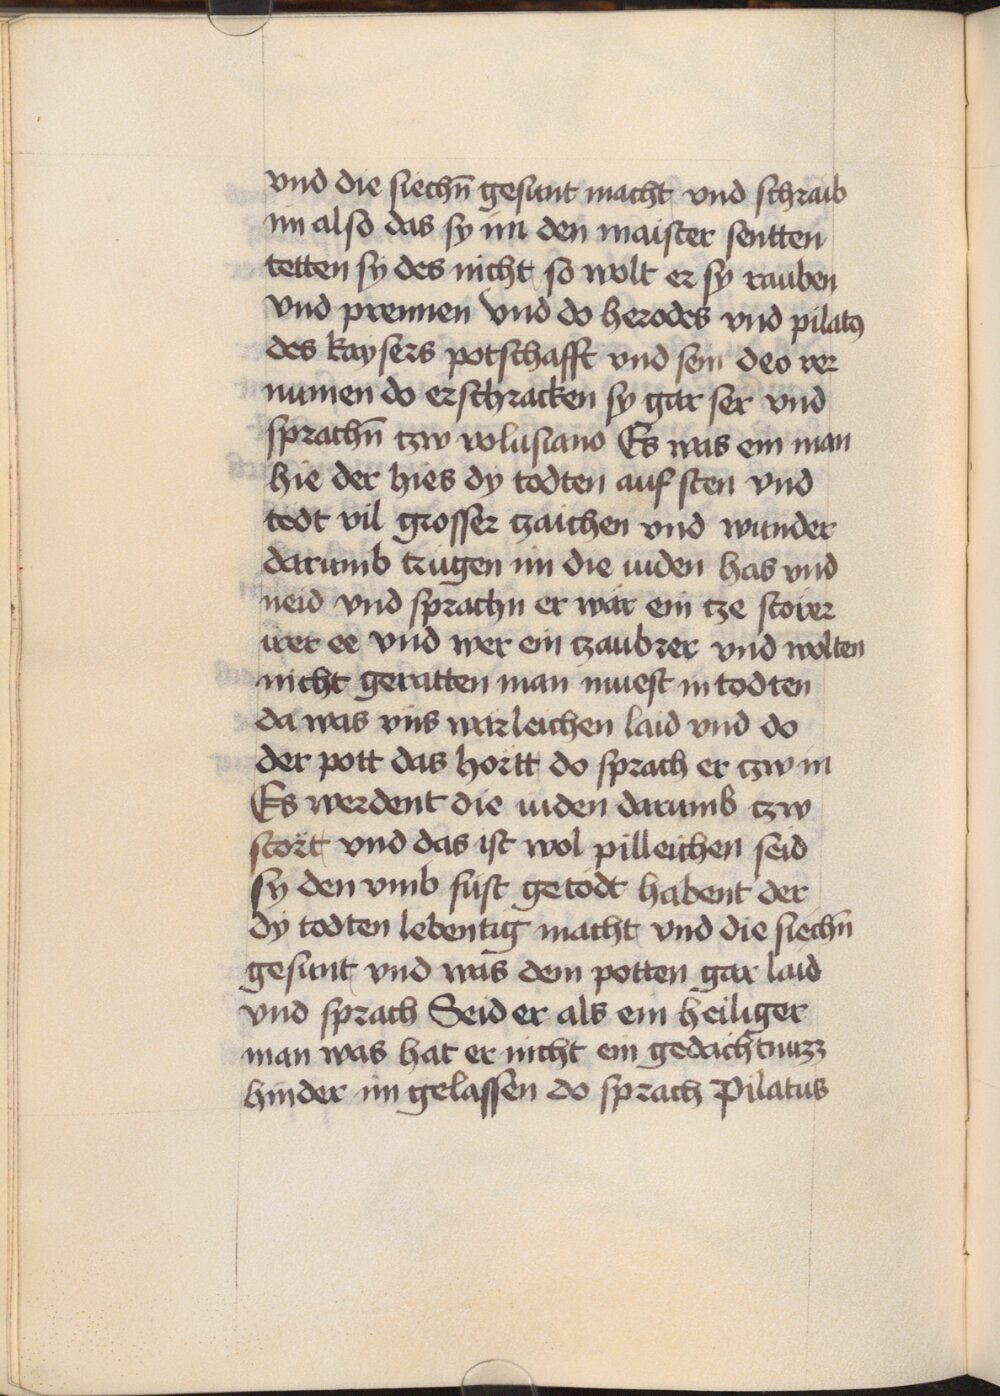 vnd die siechn̄ gesunt macht vnd schraib
im also das sy im den maister sentten
tetten sy des nicht so wolt er sy rauben
vnd prennen vnd do herodes vnd pilatꝰ
des kaysers potschafft vnd sein deo ver
numen do erschracken sy gar ser vnd
sprachn̄ tzw volusiano Es was ein man
hie der hies dy todten auf sten vnd
tedt vil grosser tzaichen vnd wunder
darumb trugen im die iuden has vnd
neid vnd sprachn er wär ein tze störer
irer ee vnd wer ein tzaubrer vnd wolten
nicht geratten man muest in todten
da was vns wärleichen laid vnd do
der pott das hortt do sprach er tzw in
Es werdent die iuden darumb tzw
stört vnd das ist wol pilleichen seid
sy den vmb süst getödt habent der
dy todten lebentig macht vnd die siechn̄
gesunt vnd was dem potten gar laid
vnd sprach Seid er als ein heiliger
man was hat er nicht ein gedächtnuzz
hinder im gelassen do sprach Pilatus